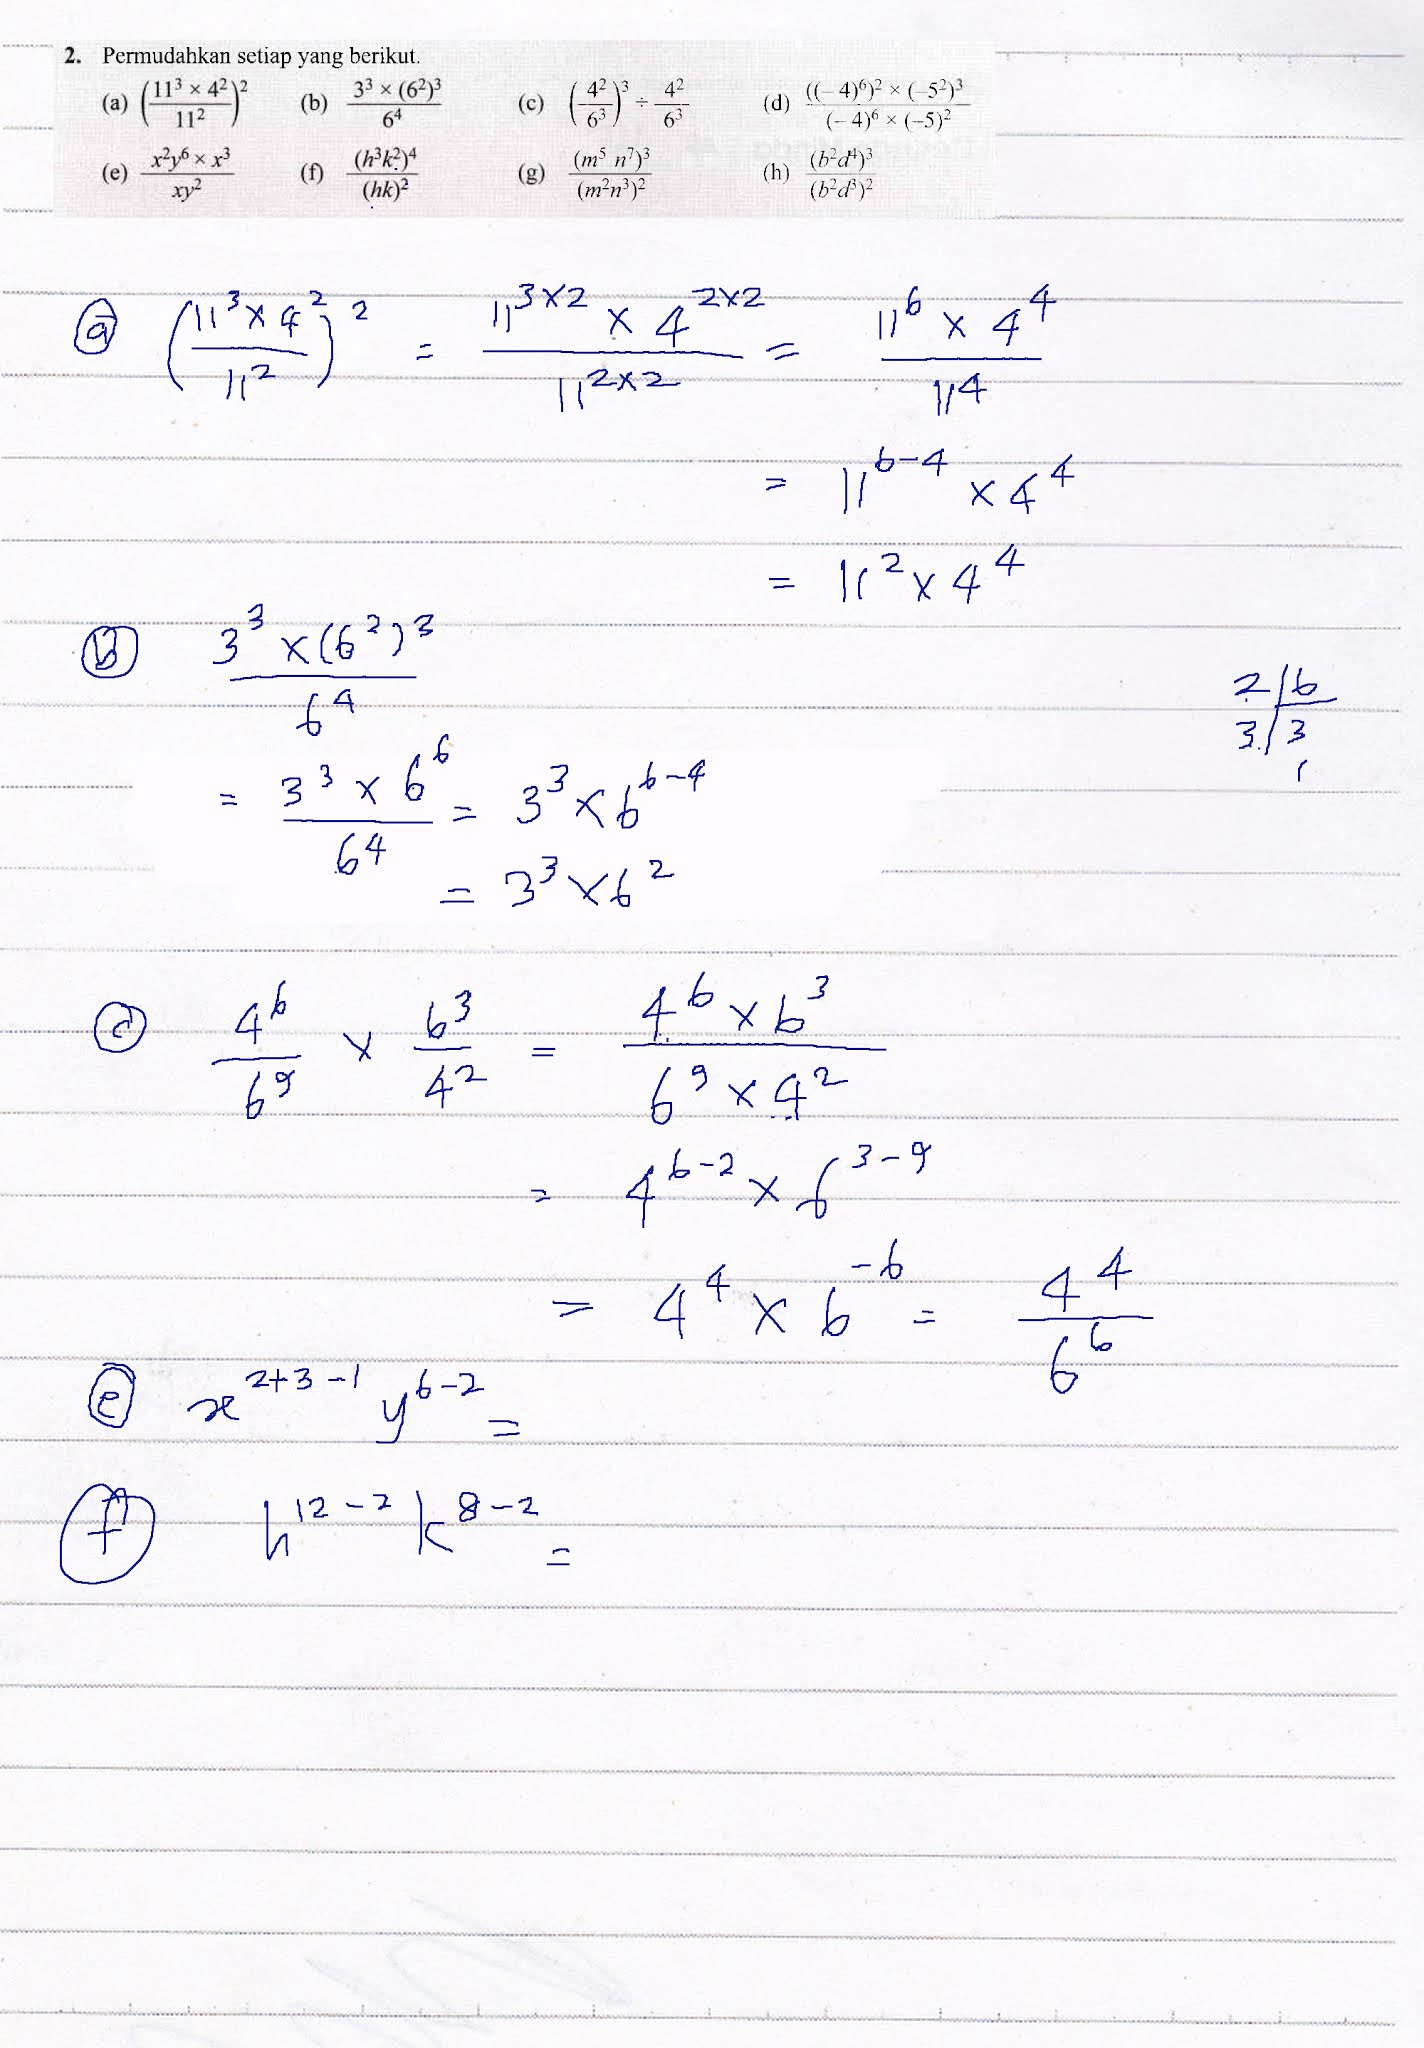 2. Permudahkan setiap yang berikut.
(a) ((11³ × 4²)/11²)² (b) (3³ × (6²)³)/6⁴ (c) (4²/6³)³ ÷ 4²/6³ (d) (((–4)⁶)² × (–5²)³)/((–4)⁶ × (–5)²)
(e) (x²y⁶ × x³)/(xy²) (f) (h³k²)⁴/(hk)² (g) (m⁵ n⁷)³/(m²n³)² (h) (b²d⁴)³/(b²d³)²
(a) ((11³ × 4²)/11²)² = (11^(3×2) × 4^(2×2))/11^(2×2) = (11⁶ × 4⁴)/11⁴
= 11^(6–4) × 4⁴
= 11² × 4⁴
(b) (3³ × (6²)³)/6⁴
2/6
3/3
1
= (3³ × 6⁶)/6⁴ = 3³ × 6^(6–4)
= 3³ × 6²
(c) 4⁶/6⁹ × 6³/4² = (4⁶ × 6³)/(6⁹ × 4²)
= 4^(6–2) × 6^(3–9)
= 4⁴ × 6^(–6) = 4⁴/6⁶
(e) x^(2+3–1) y^(6–2) =
(f) h^(12–2) k^(8–2) =